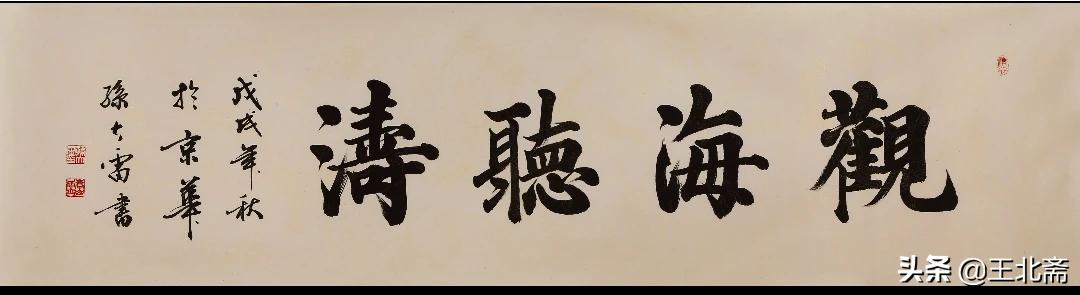 觀海聽濤
戊戌年秋
於京華
孫大雷書
头条 @王北斋